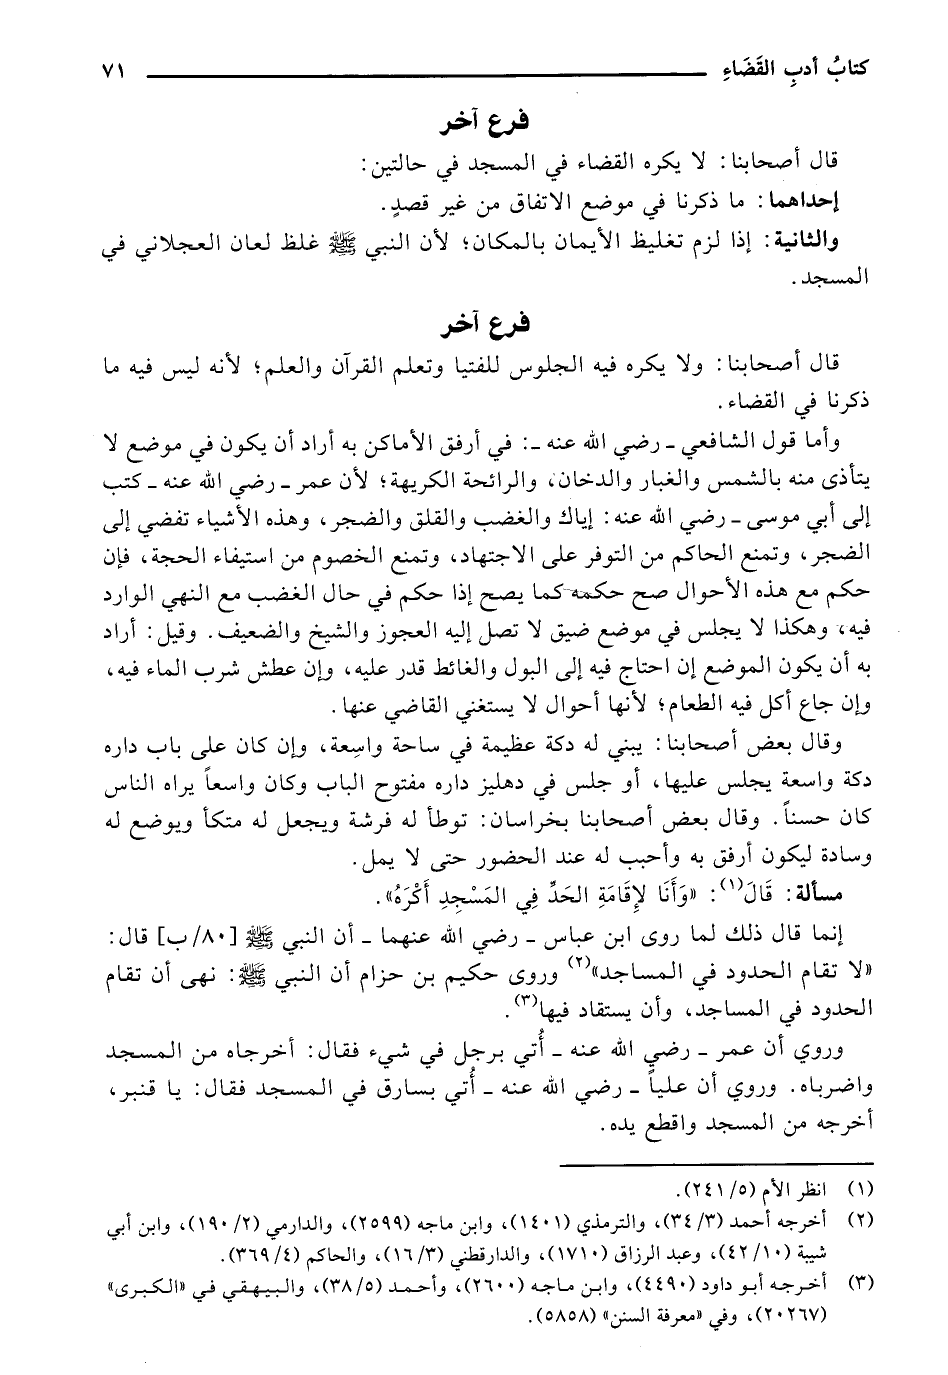 كتابُ أدبِ القَضَاءِ ٧١
فرع آخر
قال أصحابنا: لا يكره القضاء في المسجد في حالتين:
إحداهما: ما ذكرنا في موضع الاتفاق من غير قصدٍ.
والثانية: إذا لزم تغليظ الأيمان بالمكان؛ لأن النبي ﷺ غلظ لعان العجلاني في
المسجد.
فرع آخر
قال أصحابنا: ولا يكره فيه الجلوس للفتيا وتعلم القرآن والعلم؛ لأنه ليس فيه ما
ذكرنا في القضاء.
وأما قول الشافعي ـ رضي الله عنه ـ: في أرفق الأماكن به أراد أن يكون في موضع لا
يتأذى منه بالشمس والغبار والدخان، والرائحة الكريهة؛ لأن عمر ـ رضي الله عنه ـ كتب
إلى أبي موسى ـ رضي الله عنه: إياك والغضب والقلق والضجر، وهذه الأشياء تفضي إلى
الضجر، وتمنع الحاكم من التوفر على الاجتهاد، وتمنع الخصوم من استيفاء الحجة، فإن
حكم مع هذه الأحوال صح حكمه كما يصح إذا حكم في حال الغضب مع النهي الوارد
فيه، وهكذا لا يجلس في موضع ضيق لا تصل إليه العجوز والشيخ والضعيف. وقيل: أراد
به أن يكون الموضع إن احتاج فيه إلى البول والغائط قدر عليه، وإن عطش شرب الماء فيه،
وإن جاع أكل فيه الطعام؛ لأنها أحوال لا يستغني القاضي عنها.
وقال بعض أصحابنا: يبني له دكة عظيمة في ساحة واسعة، وإن كان على باب داره
دكة واسعة يجلس عليها، أو جلس في دهليز داره مفتوح الباب وكان واسعاً يراه الناس
كان حسناً. وقال بعض أصحابنا بخراسان: توطأ له فرشة ويجعل له متكأ ويوضع له
وسادة ليكون أرفق به وأحبب له عند الحضور حتى لا يمل.
مسألة: قَالَ(١): «وَأَنَا لإِقَامَةِ الحَدِّ فِي المَسْجِدِ أَكْرَهُ».
إنما قال ذلك لما روى ابن عباس ـ رضي الله عنهما ـ أن النبي ﷺ [٨٠/ ب] قال:
«لا تقام الحدود في المساجد»(٢) وروى حكيم بن حزام أن النبي ﷺ: نهى أن تقام
الحدود في المساجد، وأن يستقاد فيها(٣).
وروي أن عمر ـ رضي الله عنه ـ أُتي برجل في شيء فقال: أخرجاه من المسجد
واضرباه. وروي أن علياً ـ رضي الله عنه ـ أُتي بسارق في المسجد فقال: يا قنبر،
أخرجه من المسجد واقطع يده.
(١) انظر الأم (٥/ ٢٤١).
(٢) أخرجه أحمد (٣/ ٣٤)، والترمذي (١٤٠١)، وابن ماجه (٢٥٩٩)، والدارمي (٢/ ١٩٠)، وابن أبي
شيبة (١٠/ ٤٢)، وعبد الرزاق (١٧١٠)، والدارقطني (٣/ ١٦)، والحاكم (٤/ ٣٦٩).
(٣) أخرجه أبو داود (٤٤٩٠)، وابن ماجه (٢٦٠٠)، وأحمد (٥/ ٣٨)، والبيهقي في «الكبرى»
(٢٠٢٦٧)، وفي «معرفة السنن» (٥٨٥٨).